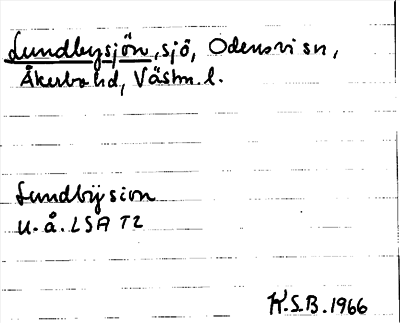 Lundbysjön, sjö, Odensvi sn,
Åkerbo hd, Västm. l.
Lundbÿsion
u.å. LSA T2
K.S.B. 1966